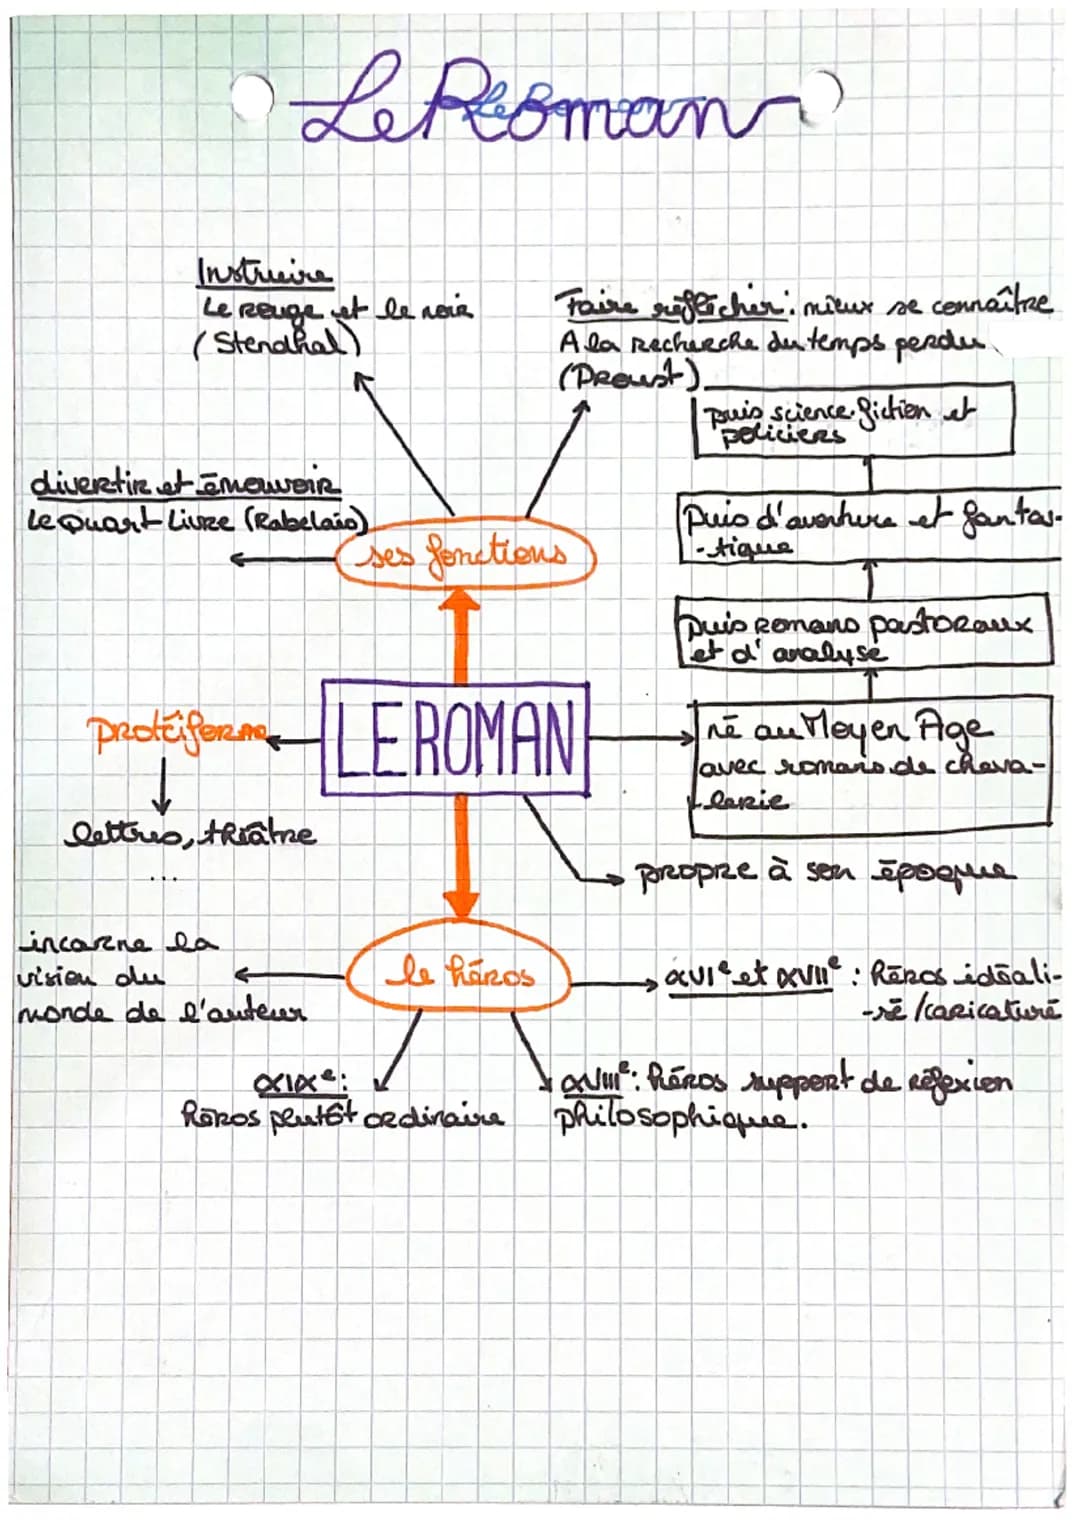 Le Roman
Le Roman
Instruire
Le rouge et le noir
(Stendhal)
Faire réflechir : mieux se connaître
A la recherche du temps perdu
(Proust)
puis science-fiction et
policiers
divertir et émouvoir
Le Quart Livre (Rabelais)
ses fonctions
puis d'aventure et fantas-
-tique
puis romans pastoraux
et d'analyse
protéiforme
LE ROMAN
né au Moyen Age
avec romans de cheva-
-lerie
lettres, théâtre
...
propre à son époque
incarne la
vision du
monde de l'auteur
le héros
XVIe et XVIIe : Héros idéali-
-sé /caricaturé
XIXe :
Héros plutôt ordinaire
XVIIIe : héros support de réfexion
philosophique.